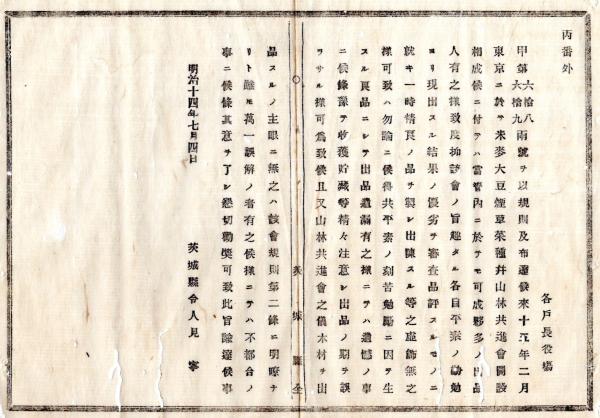 丙番外
各戸長役場
甲第六拾八六拾九兩號ヲ以規則及布達候來十五年二月
東京ニ於テ米麥大豆煙草菜種幷山林共進會開設
相成候ニ付テハ當管內ニ於テモ可成夥多ノ出品
人有之樣致度抑該會ノ旨趣タル各自平素ノ勤勉
ヨリ現出スル結果ノ優劣ヲ審査品評スルモノニ
就キ一時精良ノ品ヲ製シ出陳スル等之虛飾無之
樣可致ハ勿論ニ候得共平素ノ刻苦勉勵ニ因テ生
スル良品ニシテ出品遺漏有之樣ニテハ遺憾ノ事
ニ候條篤ヲ收獲貯藏等精々注意シ出品ノ期ヲ誤
ラサル樣可爲致候且又山林共進會之儀木材ヲ出
茨城縣令
品スルノ主眼ニ無之ハ該會規則第二條ニ明瞭ナ
リト雖モ萬一誤解ノ者有之候樣ニテハ不都合ノ
事ニ候條其意ヲ了シ懇切勸獎可致此旨諭達候事
明治十四年七月四日
茨城縣令人見寧